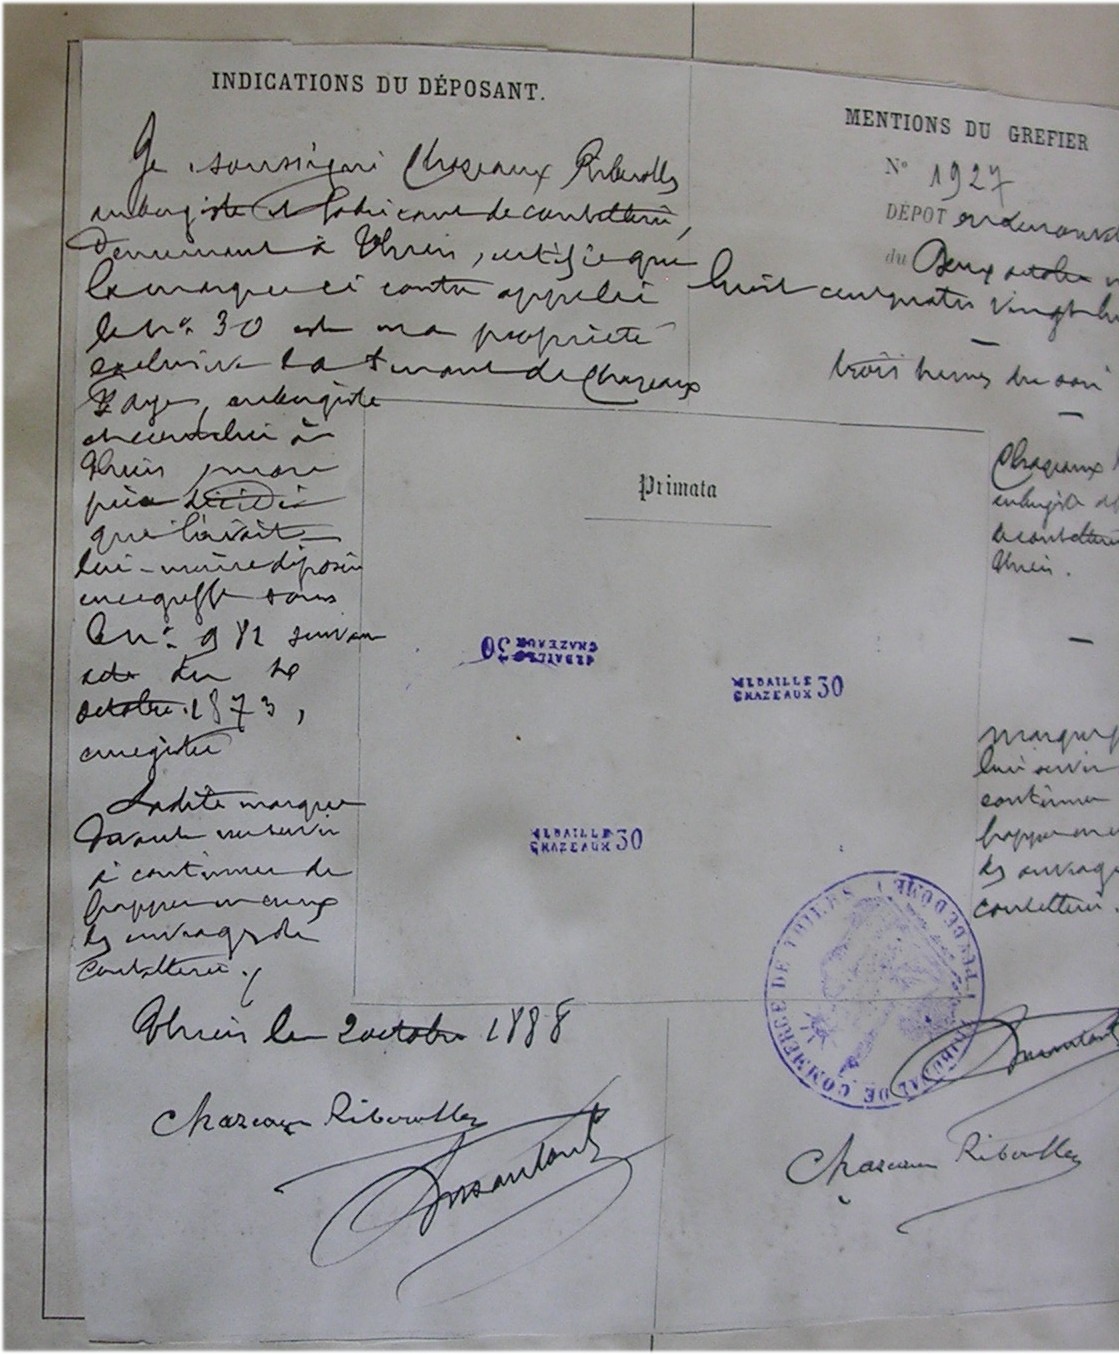 INDICATIONS DU DÉPOSANT.
Je soussigné Chazeaux Riberolles
aubergiste et fabricant de coutellerie,
demeurant à Thiers, certifie que
la marque ci contre appelée
le N° 30 est ma propriété
exclusive la tenant de Chazeaux
aubergiste
et coutelier à
Thiers, mon
père décédé
qui l'avait
lui-même déposée
au greffe sous
le n° 982 suivant
acte du
octobre 1873,
enregistré
Ladite marque
devant me servir
à continuer de
frapper
les ouvrages de
coutellerie.
Thiers le 2 octobre 1888
Chazeaux Riberolles
MENTIONS DU GREFIER
N° 1927
DÉPOT
du Deux octobre
huit cent quatre vingt hu
trois heures du soir
Chazeaux
aubergiste
de coutellerie
Thiers.
marque
lui servir
continuer
frapper
les ouvrages
coutellerie.
Primata
MEDAILLE
CHAZEAUX 30
MEDAILLE
CHAZEAUX 30
MEDAILLE
CHAZEAUX 30
TRIBUNAL DE COMMERCE DE THIERS (PUY-DE-DOME)
Chazeaux Riberolles